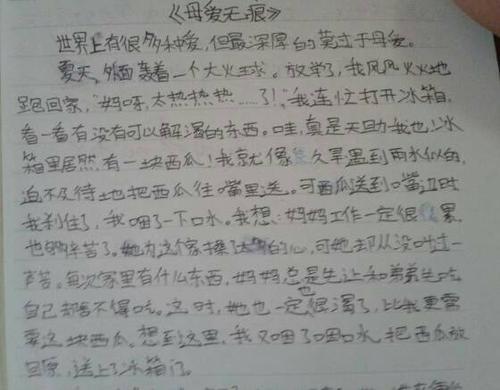 《母爱无痕》
世界上有很多种爱,但最深厚的莫过于母爱。
夏天,外面轰着一个大火球。放学了,我风风火火地
跑回家,"妈呀,太热热热……了!"我连忙打开冰箱,
看一看有没有可以解渴的东西。哇,真是天助我也!冰
箱里居然有一块西瓜!我就像久旱遇到雨水似的,
迫不及待地把西瓜往嘴里送。可西瓜送到嘴边时
我刹住了,我咽了一下口水。我想:妈妈工作一定很累,
也够辛苦了。她为这个家操了的心,可她却从没叫过一
声苦。每次家里有什么东西,妈妈总是先让和弟弟先吃
自己却舍不得吃。这时,她也一定很渴了,比我更需
要这块西瓜。想到这里,我又咽了咽口水,把西瓜放
回原,送上了冰箱门。